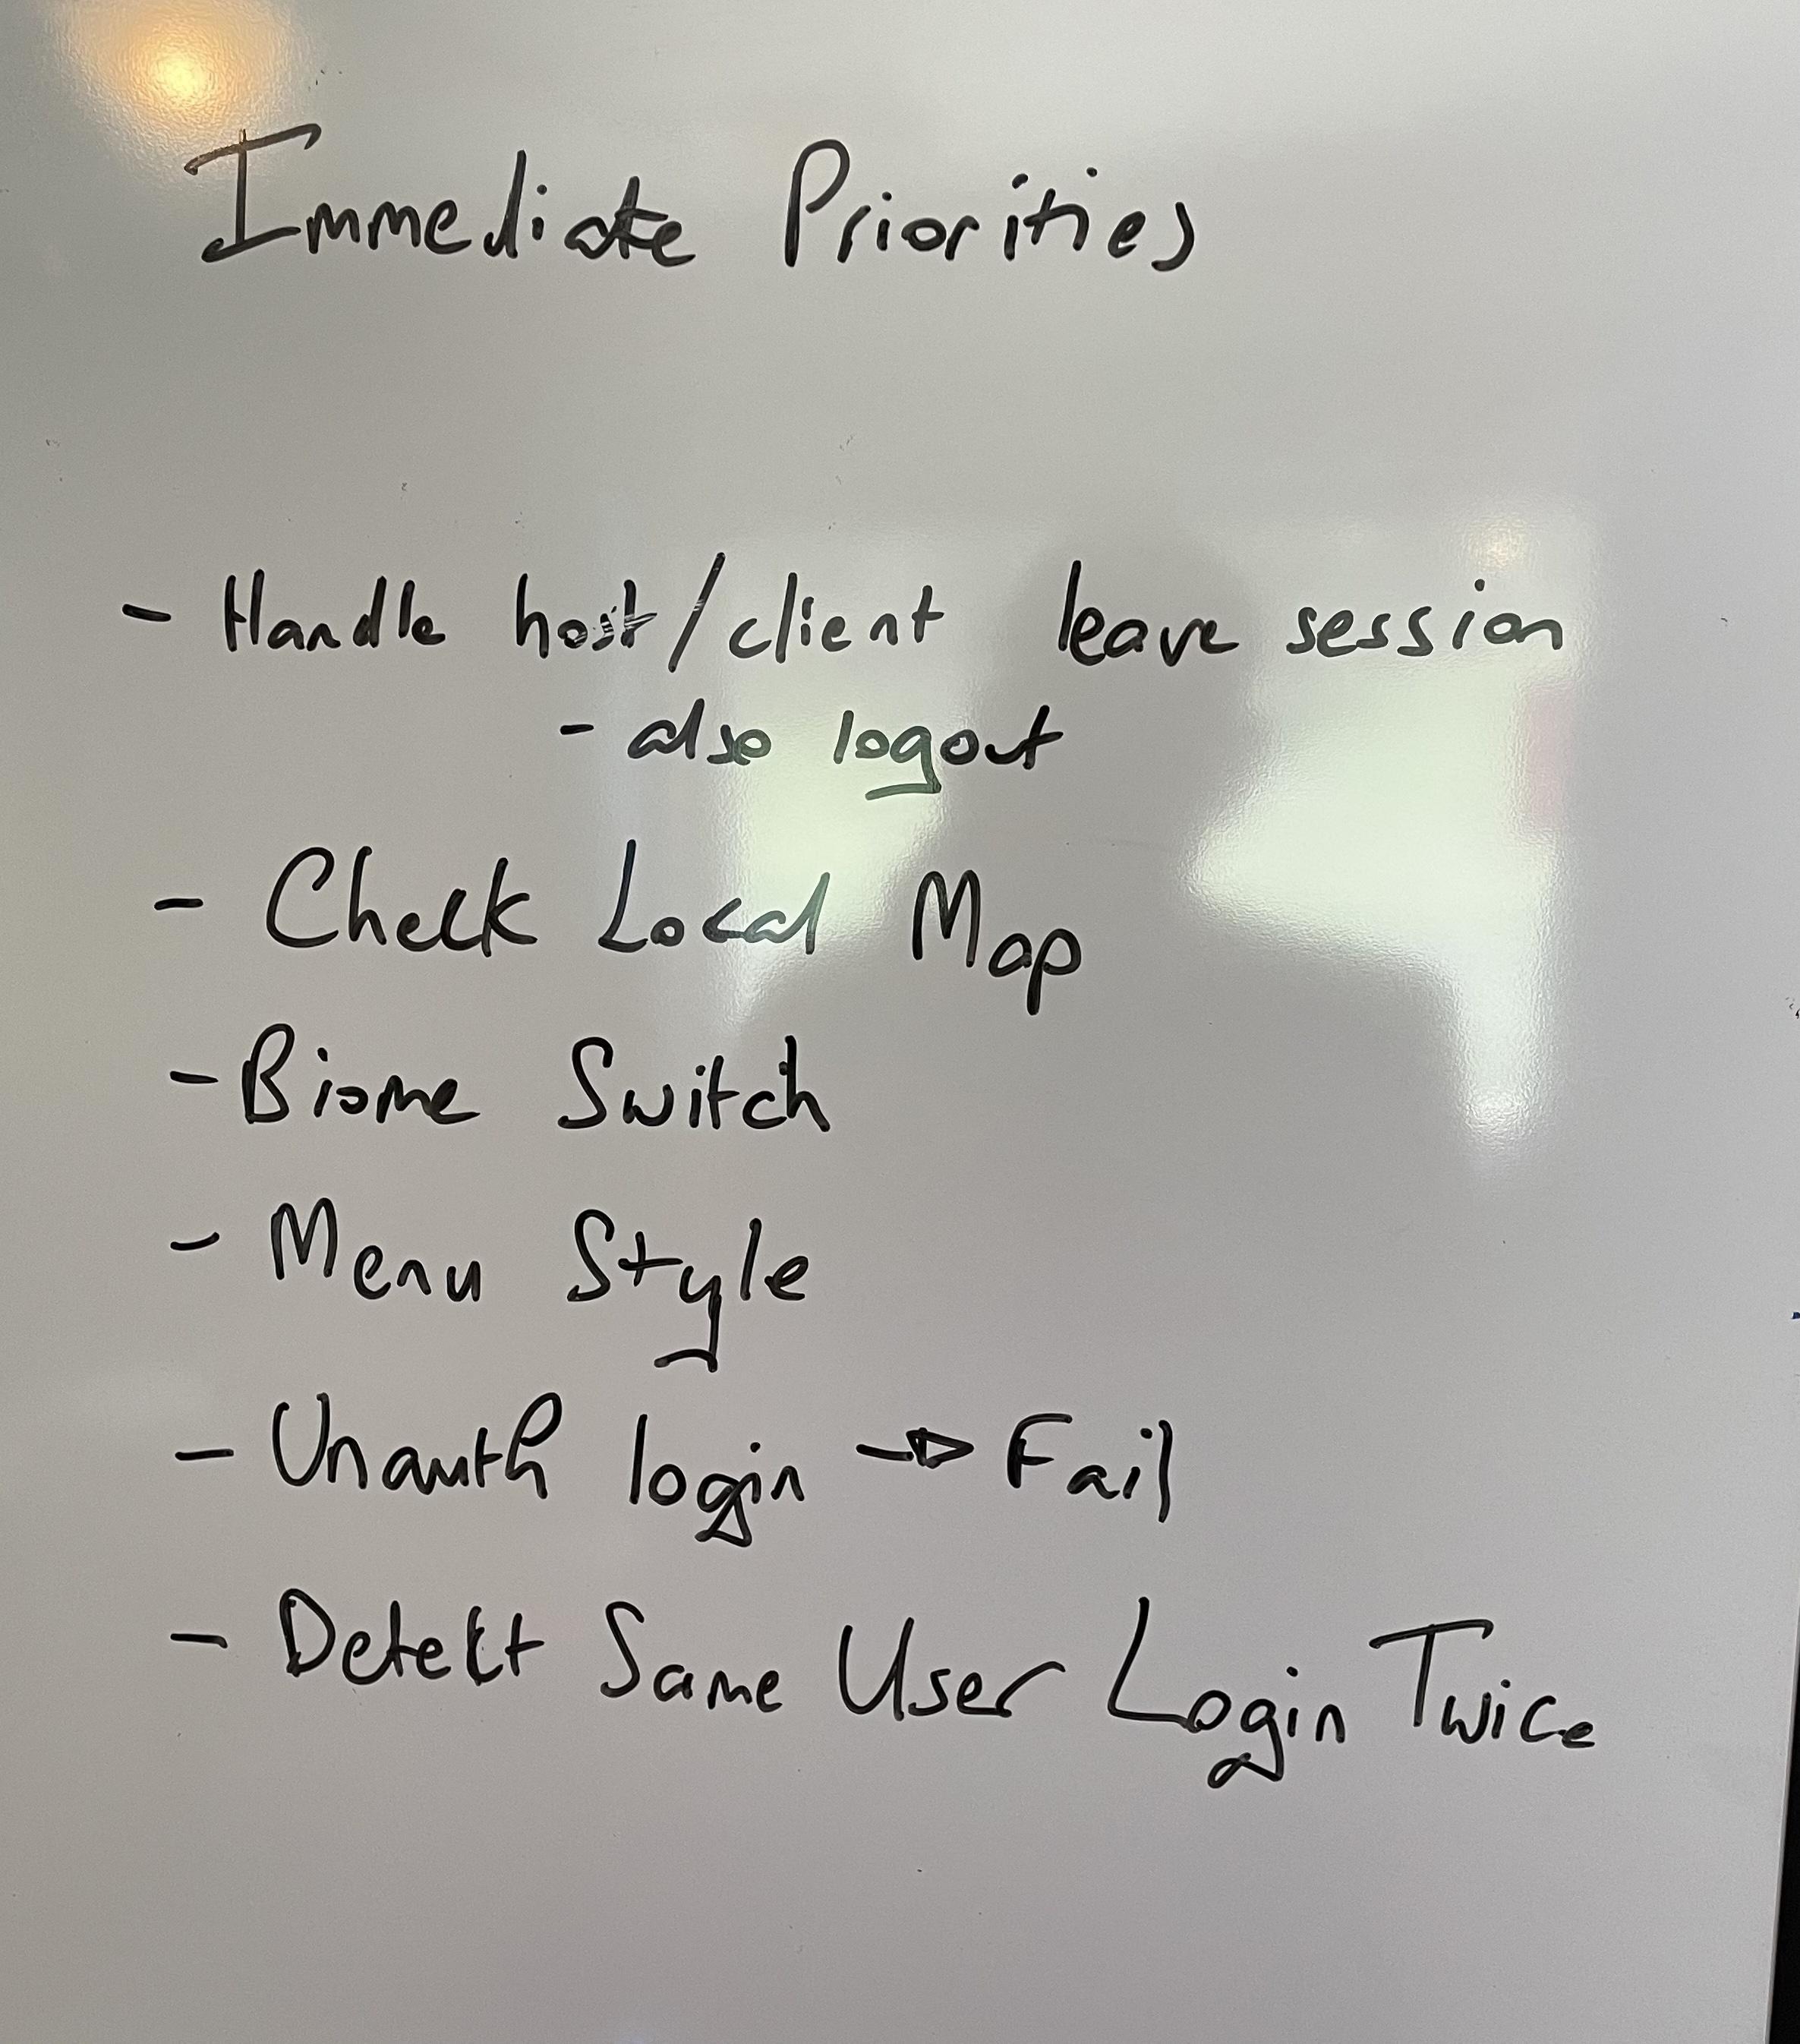 Immediate Priorities
- Handle host/client leave session
- also logout
- Check Local Map
- Biome Switch
- Menu Style
- Unauth login → Fail
- Detect Same User Login Twice